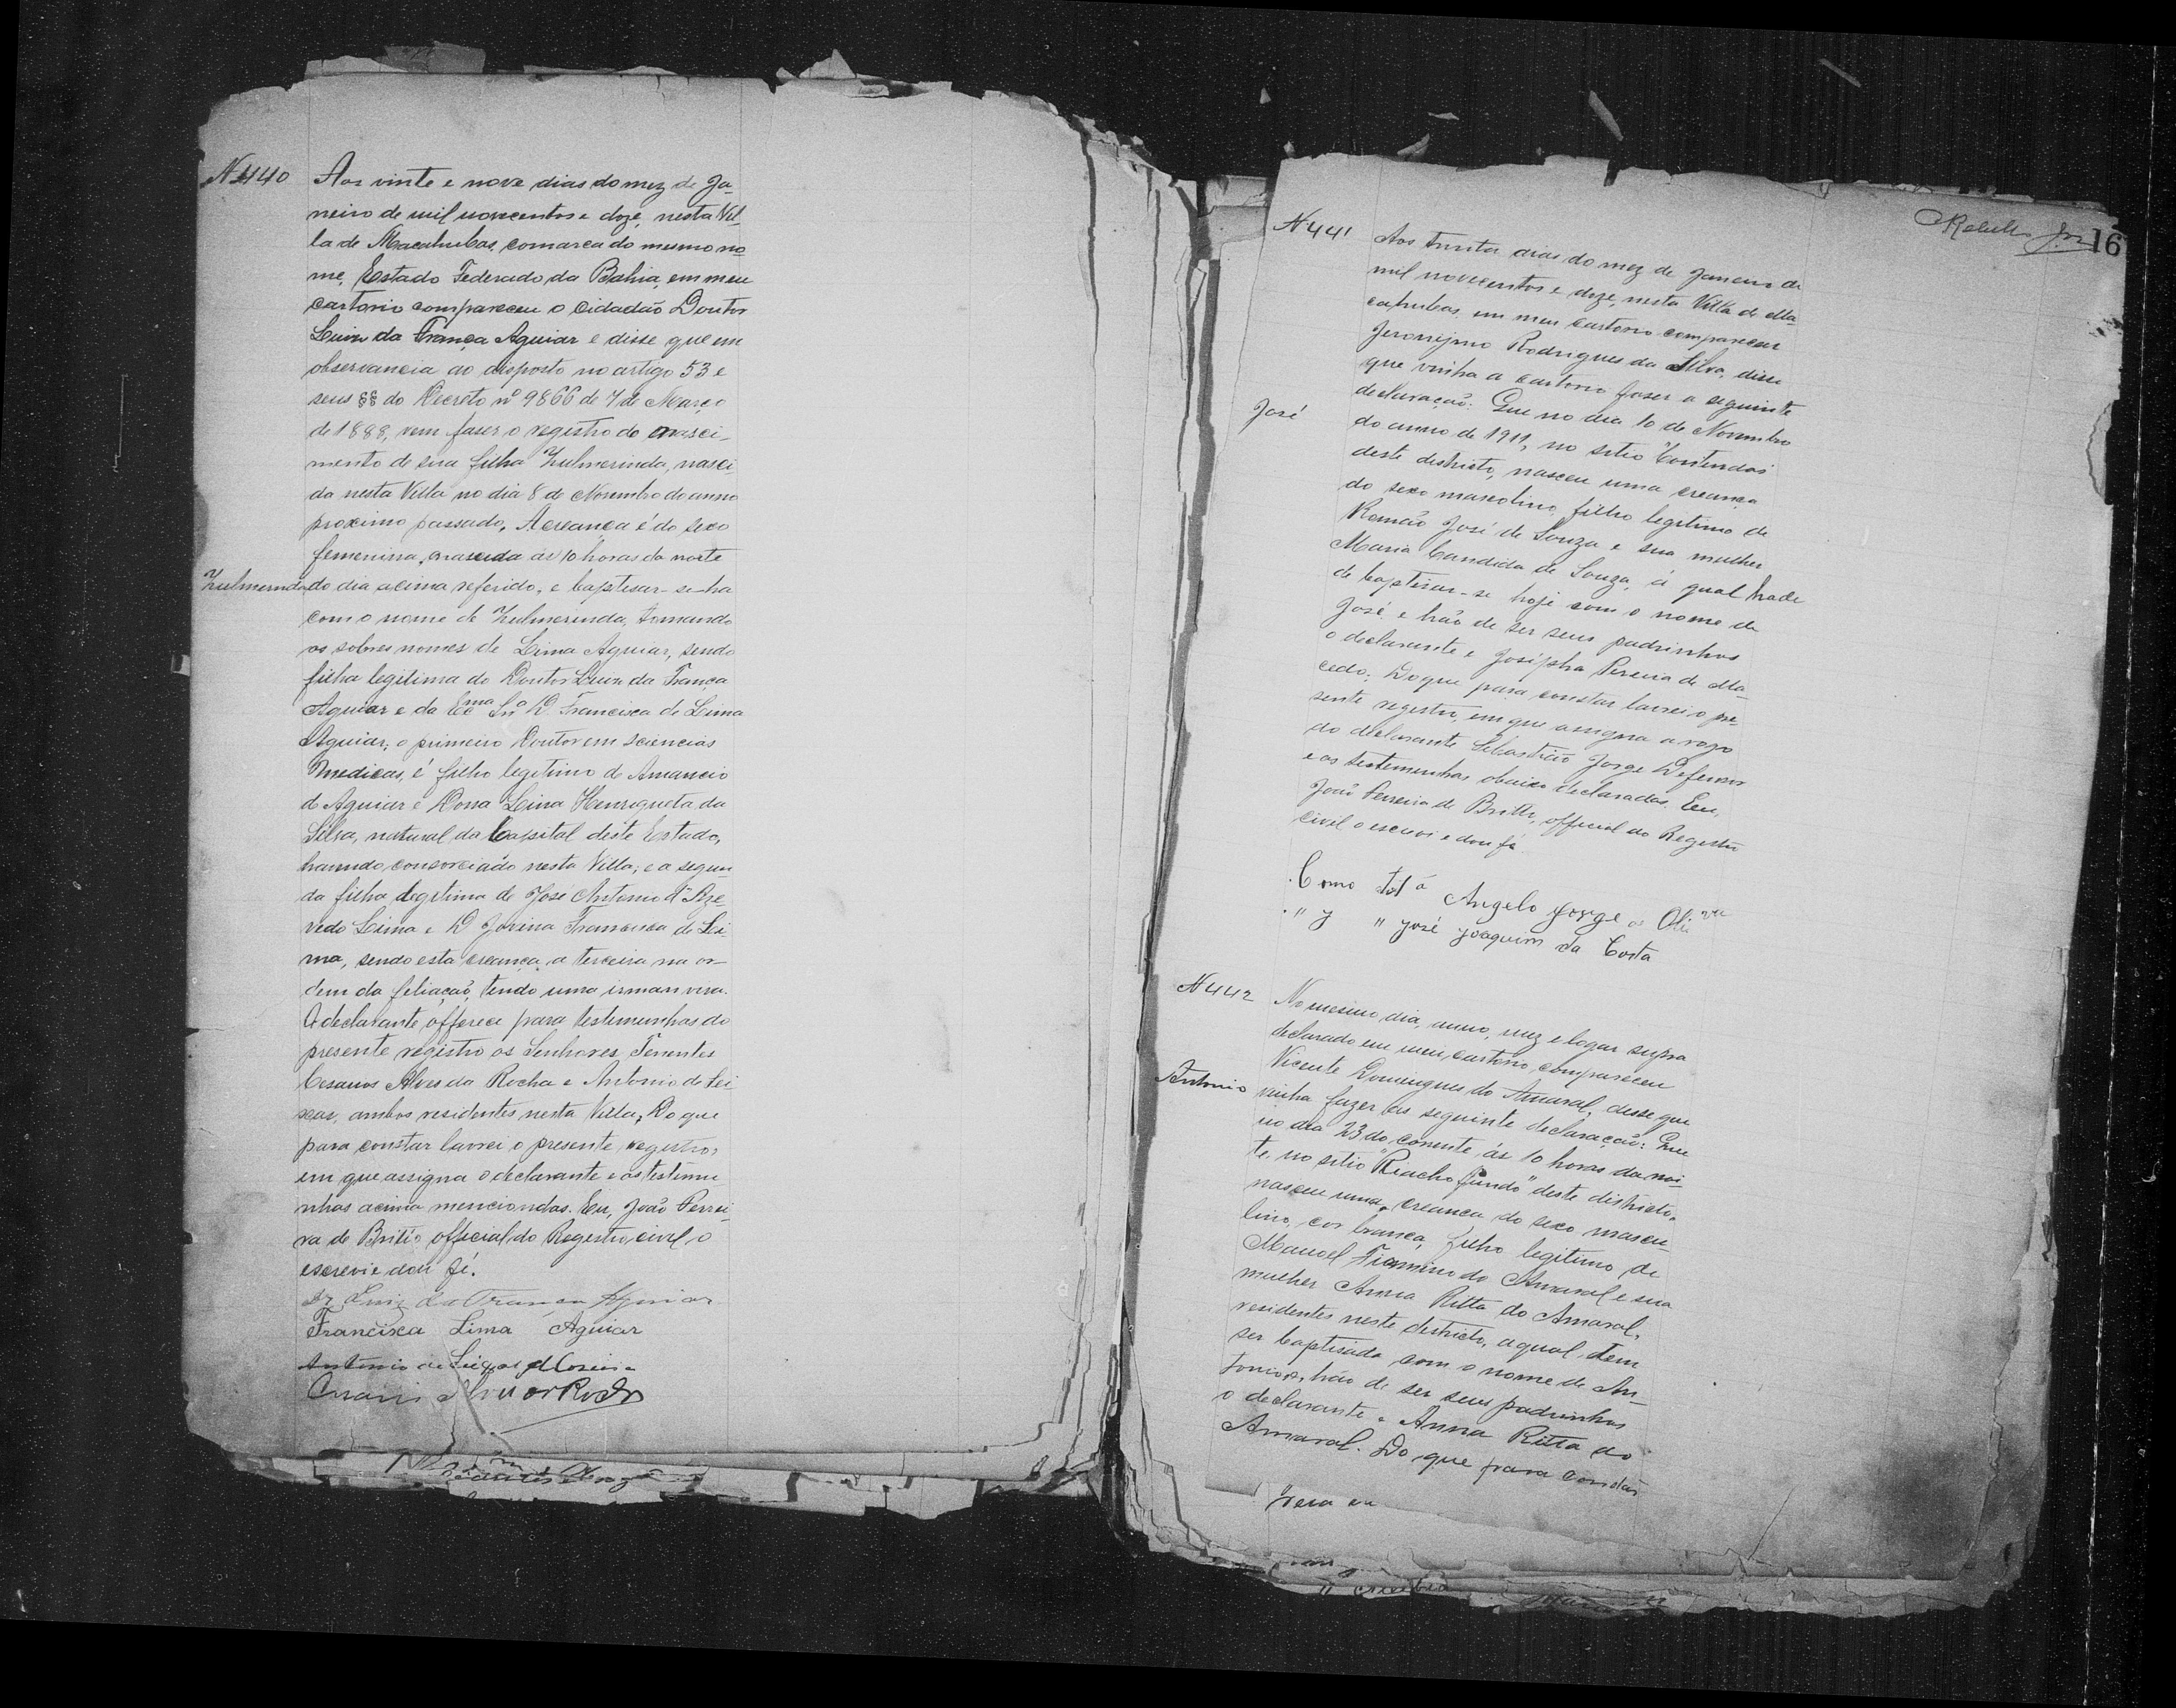 N 440
Aos vinte e nove dias do mez de Ja-
neiro de mil novecentos e doze, nesta Vil-
la de Macahubas, comarca do mesmo no-
me, Estado Federado da Bahia, em meu
cartorio compareceu o cidadão Doutor
Luiz da França Aguiar e disse que em
observancia ao disposto no artigo 53 e
seus §§ do Decreto nº 9866 de 7 de Março
de 1888, vem faser o registro do nasci-
mento de sua filha Zulmerinda, nasci-
da nesta Villa no dia 8 de Novembro do anno
proximo passado, A creança é do sexo
femenino, nascida ás 10 horas da noite
Zulmerinda
do dia acima referido, e baptisar-se-ha
com o nome de Zulmerinda, tomando
os sobres nomes de Lima Aguiar, sendo
filha legitima do Doutor Luiz da França
Aguiar e da Ecma Snra D. Francisca de Lima
Aguiar; o primeiro Doutor em sciencias
medicas, é filho legitimo de Amancio
de Aguiar e Dona Lina Henriqueta da
Silva, natural da Capital deste Estado,
havendo consorciado nesta Villa; e a segun-
da filha legitima de José Antonio d'Aze-
vedo Lima e D Jovina Francisca de Li-
ma, sendo esta creança a terceira na or-
dem da filiação, tendo uma irman viva.
O declarante offerece para testimunhas do
presente registro os Senhores Tenentes
Cesarios Alves da Rocha e Antonio de Sei-
xas, ambos residentes nesta Villa; Do que
para constar lavrei o presente registro,
em que assigna o declarante e as testimu-
nhas acima mencionadas. Eu, João Perei-
ra de Britto official do Registro civil o
escrevi e dou fé.
Dr Luiz da França Aguiar
Francisca Lima Aguiar
Antonio de
Alves da Rocha
16
N 441
Aos trinta dias do mez de Janeiro de
mil novecentos e doze, nesta Villa de Ma-
cahubas, em meu cartorio compareceu
Jeronymo Rodrigues da Silva, disse
que vinha a cartorio faser a seguinte
declaração: Que no dia 10 de Novembro
José
do anno de 1911, no sitio "Contendas"
deste districto, nasceu uma creança
do sexo mascolino, filho legitimo de
Romão José de Souza e sua mulher
Maria Candida de Souza, á qual hade
de baptisar-se hoje com o nome de
José e hão de ser seus padrinhos
o declarante e Josépha Pereira de Ma-
cedo; Do que para constar lavrei o pre-
sente registro, em que assigna a rogo
do declarante Sebastião Jorge Defensor
e as testemunhas abaixo declaradas. Eu,
João Pereira de Britto, official do Registro
civil o escrevi e dou fé
Como Tstª Angelo Jorge de OliVra
" " José Joaquim da Costa
N 442
No mesmo dia, anno, mez e logar supra
declarado em meu cartorio, compareceu
Vicente Domingues do Amaral, desse que
Antonio
vinha fazer as seguinte declaração: Que
no dia 23 do corrente, ás 10 horas da noi-
te, no sitio "Riacho fundo" deste districto,
nasceu uma creanca do sexo mascu-
lino, cor branca, filho legitimo de
Manoel Firmino do Amaral e sua
mulher Anna Ritta do Amaral,
residentes neste districto, aqual tem
ser baptisada com o nome de An-
tonio, hão de ser seus padrinhos
o declarante e Anna Ritta do
Amaral. Do que para constar